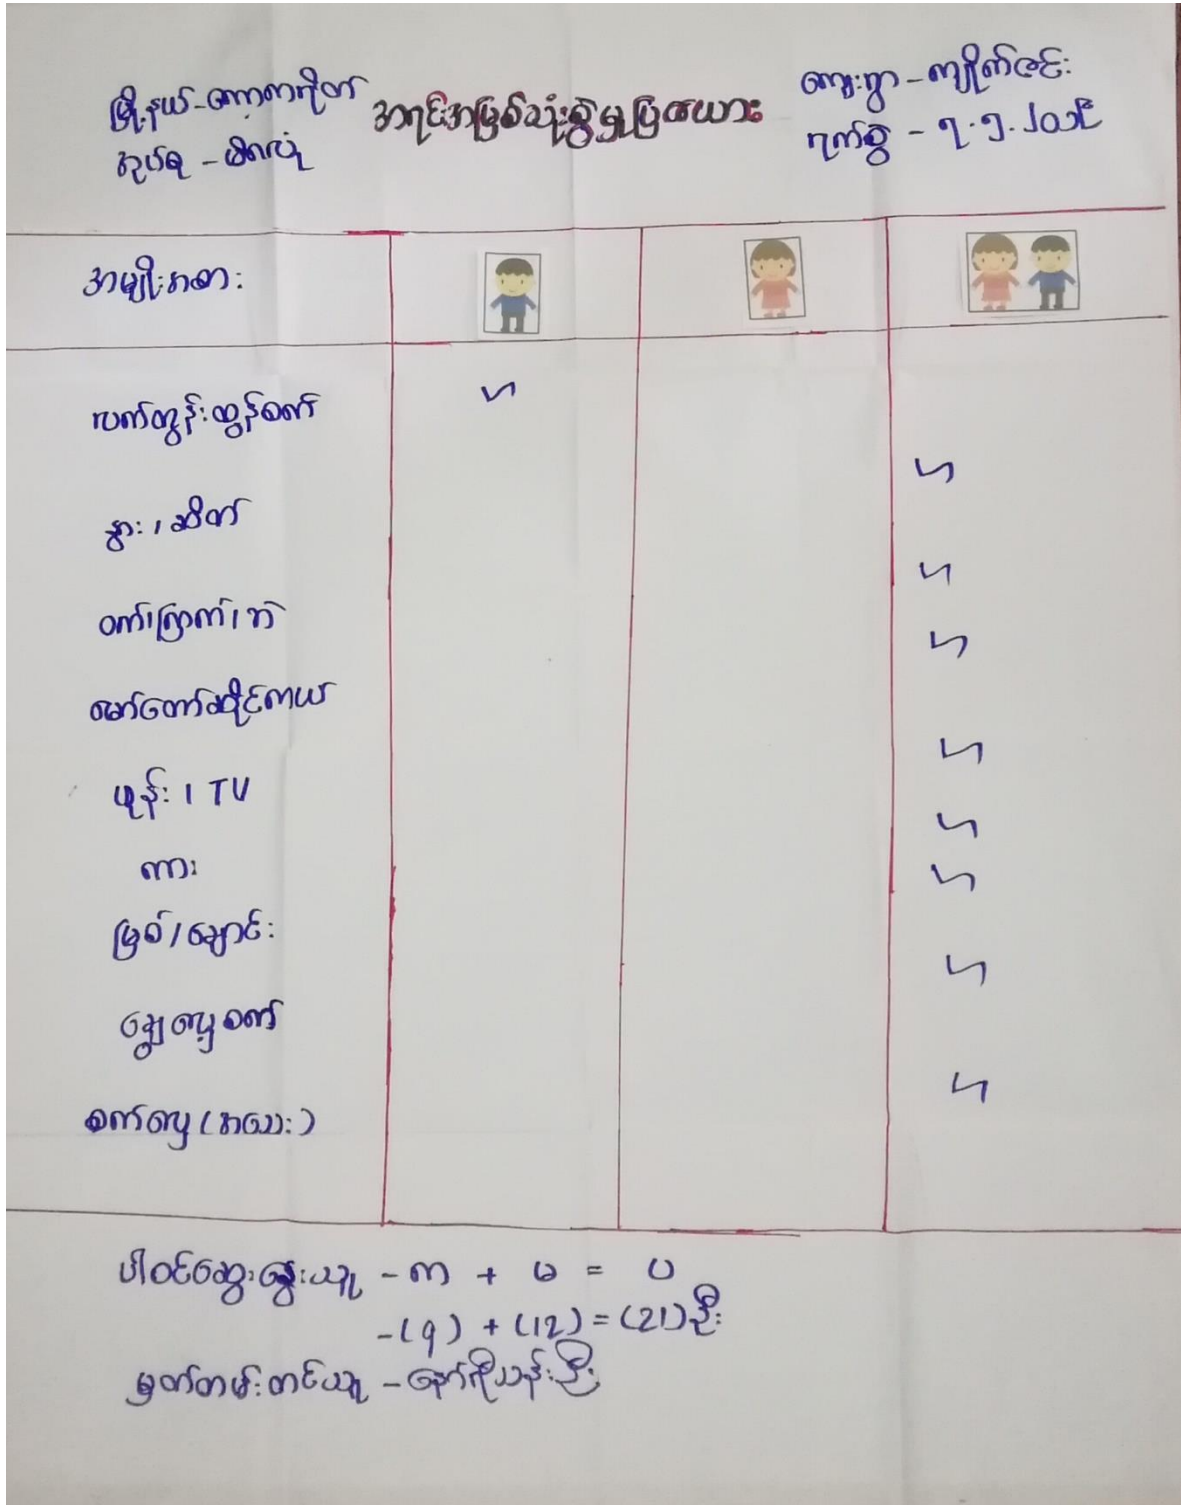 မြို့နယ် - ကော့ကရိတ်
အုပ်စု - မိကလုံ
အရင်းအမြစ်သုံးစွဲမှုပြဇယား
ကျေးရွာ - ကျိုက်ဇင်း
ရက်စွဲ - ၃.၅.၂၀၁၆
အမျိုးအစား
လက်တွန်းထွန်စက်
နွား၊ ဆိတ်
ဝက်၊ ကြက်၊ ဘဲ
မော်တော်ဆိုင်ကယ်
ဖုန်း၊ TV
ကား
မြစ်/ချောင်း
ချွေလှေ့စက်
စက်လှေ (အသေး)
ပါဝင်ဆွေးနွေးသူ - ကျ + မ = ပ
- (9) + (12) = (21) ဦး
မှတ်တမ်းတင်သူ -